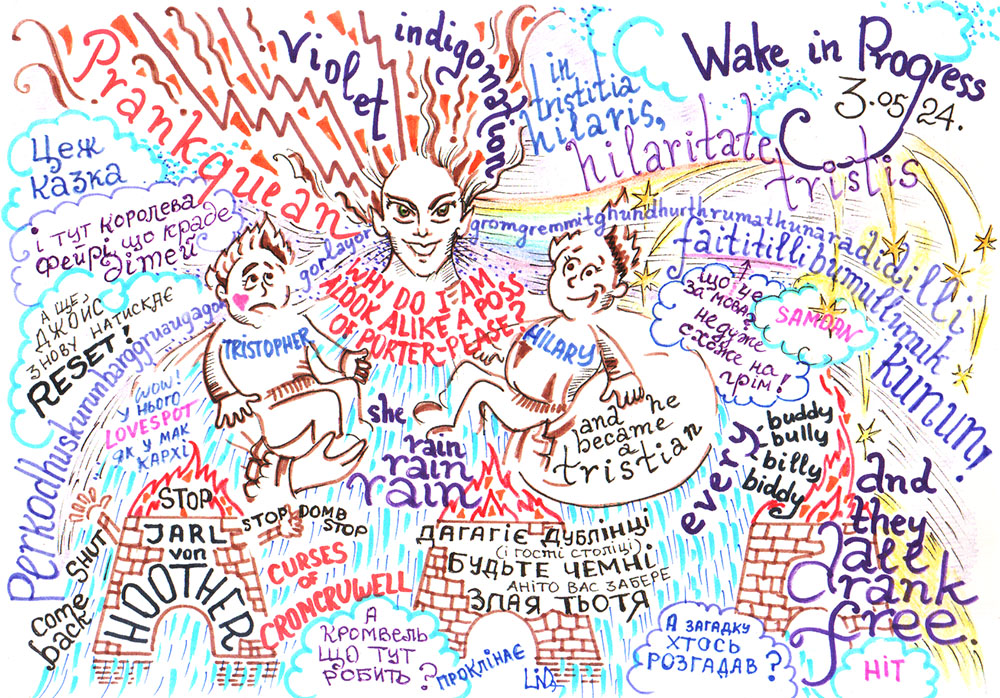 Wake in Progress
3.05.24.
Prankquean
violet
indigonation
in
tristitia
hilaris,
hilaritate
tristis
Цеж
казка
і тут королева
фейрі, що краде
дітей
А ще,
Джойс
знову натискає
RESET!
Perkodhuskurunbarggruauyagok
gorlayor
gromgremmitghundhurthrumathunaradidilli
faititillibumullunuk
kunun!
WHY DO I AM
ALOOK ALIKE A POSS
OF PORTER-PEASE?
TRISTOPHER
HILARY
що це
за мова?
не дуже
схоже на
грім!
SAMOAN
WOW!
у нього
LOVESPOT
як у МАК
КАРХІ
she
rain
rain
rain
and he
became
a
tristian
every
buddy
bully
billy
biddy
and
they
all
drank
free.
SHUTT
come
back
STOP
JARL
von
HOOTHER
STOP DOMB
STOP
CURSES
OF
CROMCRUWELL
ДАГАГІЄ ДУБЛІНЦІ
(і гості столиці)
БУДЬТЕ ЧЕМНІ
АНІТО ВАС ЗАБЕРЕ
ЗЛАЯ ТЬОТЯ
А
КРОМВЕЛЬ
ЩО ТУТ
РОБИТЬ?
ПРОКЛІНАЄ
А ЗАГАДКУ
ХТОСЬ
РОЗГАДАВ?
НІТ